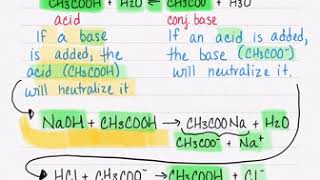 CH3COOH + H2O ⇌ CH3COO⁻ + H3O
acid conj. base
If a base
is added, the
acid (CH3COOH)
will neutralize it.
If an acid is added,
the base (CH3COO⁻)
will neutralize it.
NaOH + CH3COOH → CH3COONa + H2O
CH3COO⁻ + Na⁺
HCl + CH3COO⁻ → CH3COOH + Cl⁻